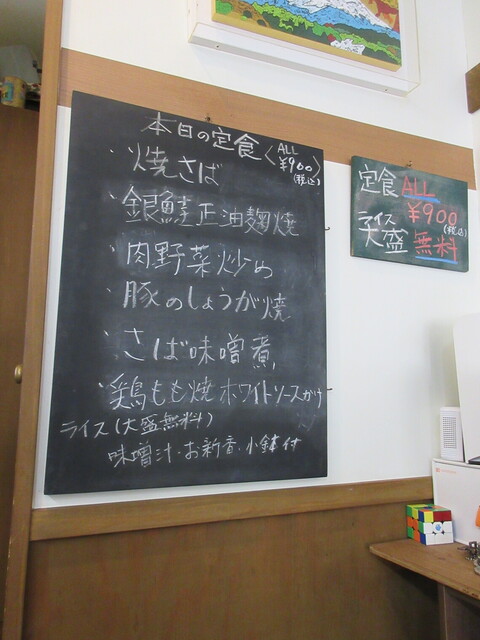 本日の定食〈ALL ¥900(税込)〉
・焼さば
・銀鮭正油麹焼
・肉野菜炒め
・豚のしょうが焼
・さば味噌煮
・鶏もも焼ホワイトソースがけ
ライス(大盛無料)
味噌汁・お新香・小鉢付
定食ALL
¥900(税込)
ライス大盛無料